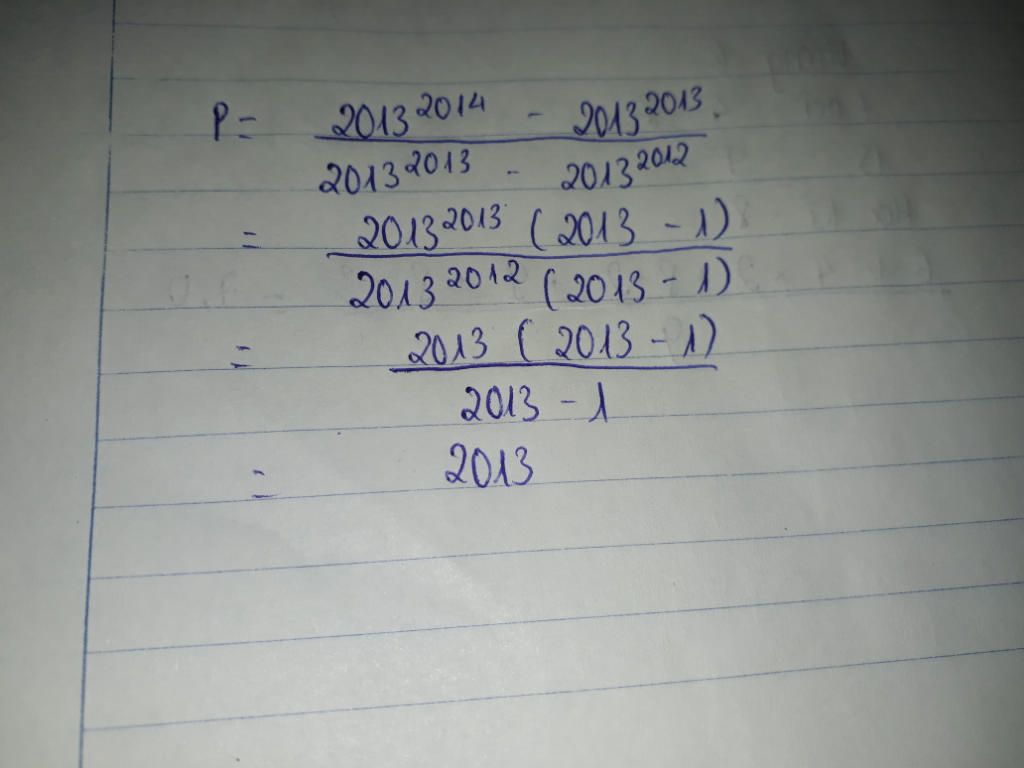 P = 2013^2014 - 2013^2013.
2013^2013 - 2013^2012
= 2013^2013 ( 2013 - 1)
2013^2012 (2013 - 1)
= 2013 ( 2013 - 1)
2013 - 1
= 2013